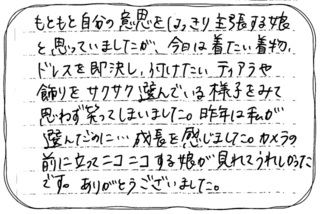 もともと自分の意思をはっきり主張する娘
と思っていましたが、今日は着たい着物、
ドレスを即決し、付けたいティアラや
飾りをサクサク選んでいる様子をみて
思わず笑ってしまいました。昨年は私が
選んだのに…成長を感じました。カメラの
前に立ってニコニコする娘が見れてうれしかった
です。ありがとうございました。